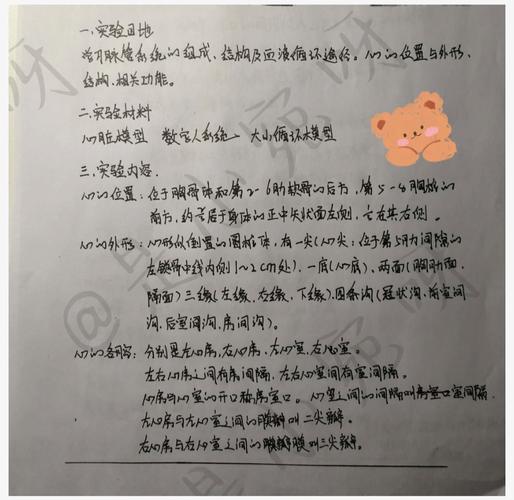 一、实验目地
学习脉管系统的组成、结构及血液循环途径。心的位置与外形、
结构、相关功能。
二、实验材料
心脏模型 数字人系统 大小循环模型
三、实验内容
心的位置：位于胸骨体和第2-6肋软骨的后方，第5-8胸椎的
前方，约 居于身体的正中矢状面左侧， 在其右侧。
心的外形：心形似倒置的圆椎体，有一尖(心尖：位于第5肋间隙的
左锁骨中线内侧1~2cm处)、一底(心底)、两面(胸肋面、
隔面)三缘(左缘、右缘、下缘)、四条沟(冠状沟、前室间
沟、后室间沟、房间沟)。
心的各 ：分别是左心房、右心房、左心室、右心室。
左右心房之间有房间隔，左右心室间有室间隔。
心房与心室的开口称房室口。心室之间的间隔叫 室间隔。
左心房与左心室之间的瓣膜叫二尖瓣。
右心房与右心室之间的瓣膜叫三尖瓣。